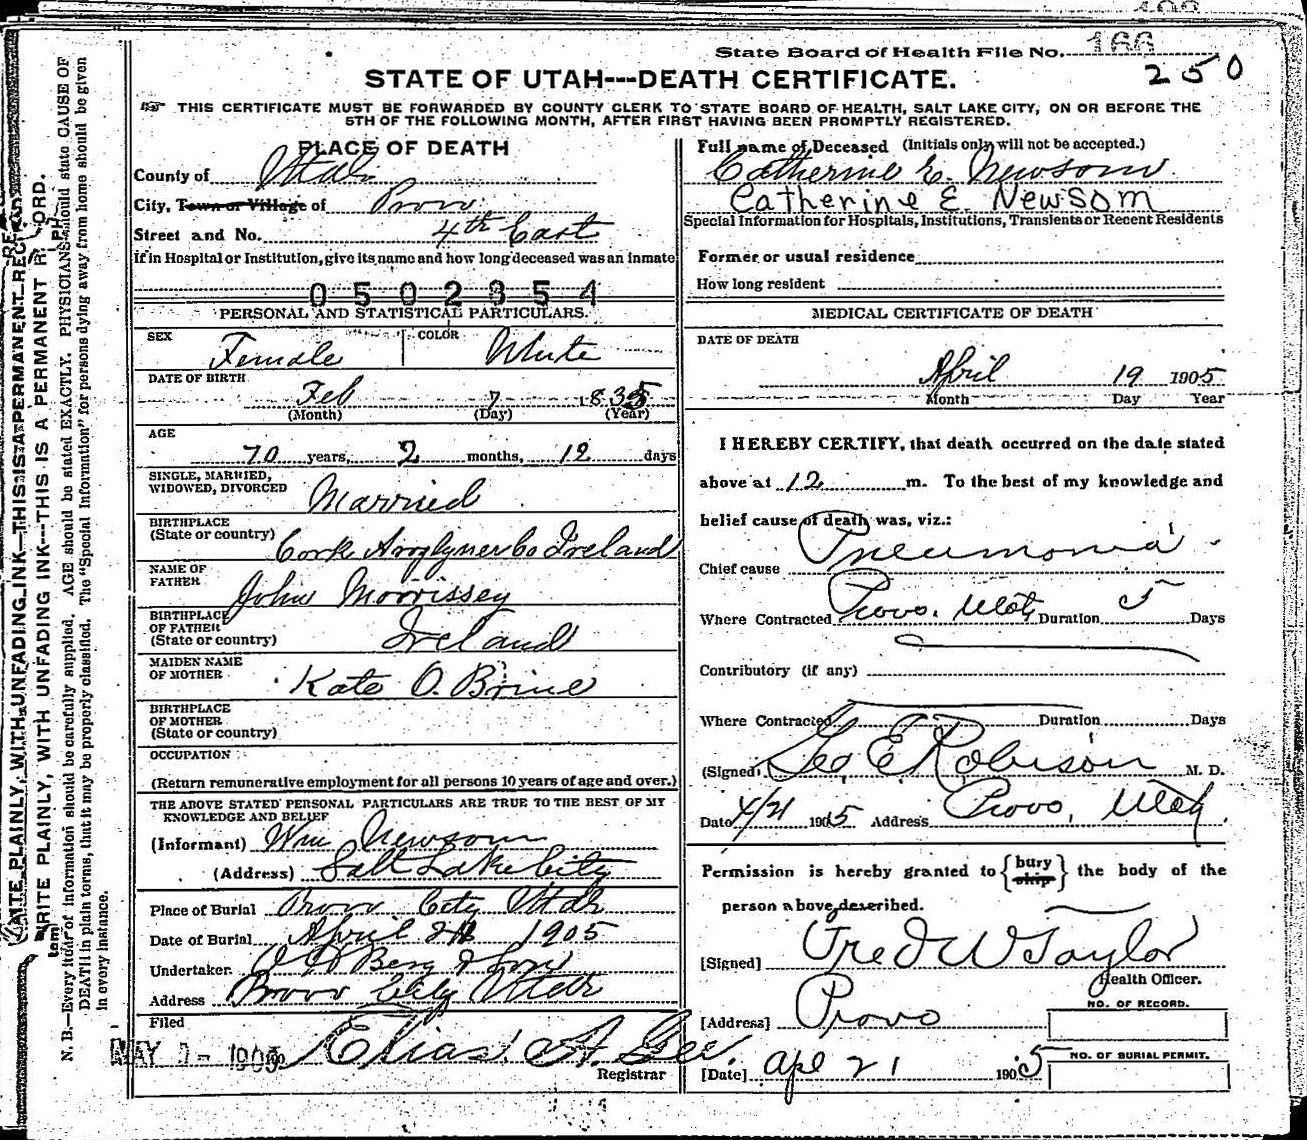 State Board of Health File No. 166
250
STATE OF UTAH---DEATH CERTIFICATE.
THIS CERTIFICATE MUST BE FORWARDED BY COUNTY CLERK TO STATE BOARD OF HEALTH, SALT LAKE CITY, ON OR BEFORE THE
5TH OF THE FOLLOWING MONTH, AFTER FIRST HAVING BEEN PROMPTLY REGISTERED.
PLACE OF DEATH
County of Utah
City, Town or Village of Provo
Street and No. 4th East
If in Hospital or Institution, give its name and how long deceased was an inmate
0502354
PERSONAL AND STATISTICAL PARTICULARS.
SEX Female COLOR White
DATE OF BIRTH
Feb 7 1835
(Month) (Day) (Year)
AGE
70 years, 2 months, 12 days
SINGLE, MARRIED,
WIDOWED, DIVORCED Married
BIRTHPLACE
(State or country) Cork Co Ireland
NAME OF
FATHER John Morrissey
BIRTHPLACE
OF FATHER
(State or country) Ireland
MAIDEN NAME
OF MOTHER Kate O. Brine
BIRTHPLACE
OF MOTHER
(State or country)
OCCUPATION
(Return remunerative employment for all persons 10 years of age and over.)
THE ABOVE STATED PERSONAL PARTICULARS ARE TRUE TO THE BEST OF MY
KNOWLEDGE AND BELIEF
(Informant) Wm Newsom
(Address) Salt Lake City
Place of Burial Provo City Utah
Date of Burial April 1905
Undertaker. Berg & Son
Address Provo City Utah
Filed
MAY 1905 Elias A. Gee.
Registrar
Full name of Deceased (Initials only will not be accepted.)
Catherine E. Newsom
Catherine E. Newsom
Special Information for Hospitals, Institutions, Transients or Recent Residents
Former or usual residence
How long resident
MEDICAL CERTIFICATE OF DEATH
DATE OF DEATH
April 19 1905
Month Day Year
I HEREBY CERTIFY, that death occurred on the date stated
above at 12 m. To the best of my knowledge and
belief cause of death was, viz.:
Chief cause Pneumonia
Where Contracted Provo, Utah Duration 5 Days
Contributory (if any)
Where Contracted Duration Days
(Signed) Geo E Robison M. D.
Date 4/21 1905 Address Provo, Utah.
Permission is hereby granted to {bury ship} the body of the
person above described.
[Signed] Fred W Taylor
Health Officer.
[Address] Provo
NO. OF RECORD.
[Date] Apl 21 1905
NO. OF BURIAL PERMIT.
WRITE PLAINLY, WITH UNFADING INK---THIS IS A PERMANENT RECORD.
N. B.—Every item of information should be carefully supplied. AGE should be stated EXACTLY. PHYSICIANS should state CAUSE OF
DEATH in plain terms, that it may be properly classified. The "Special Information" for persons dying away from home should be given
in every instance.